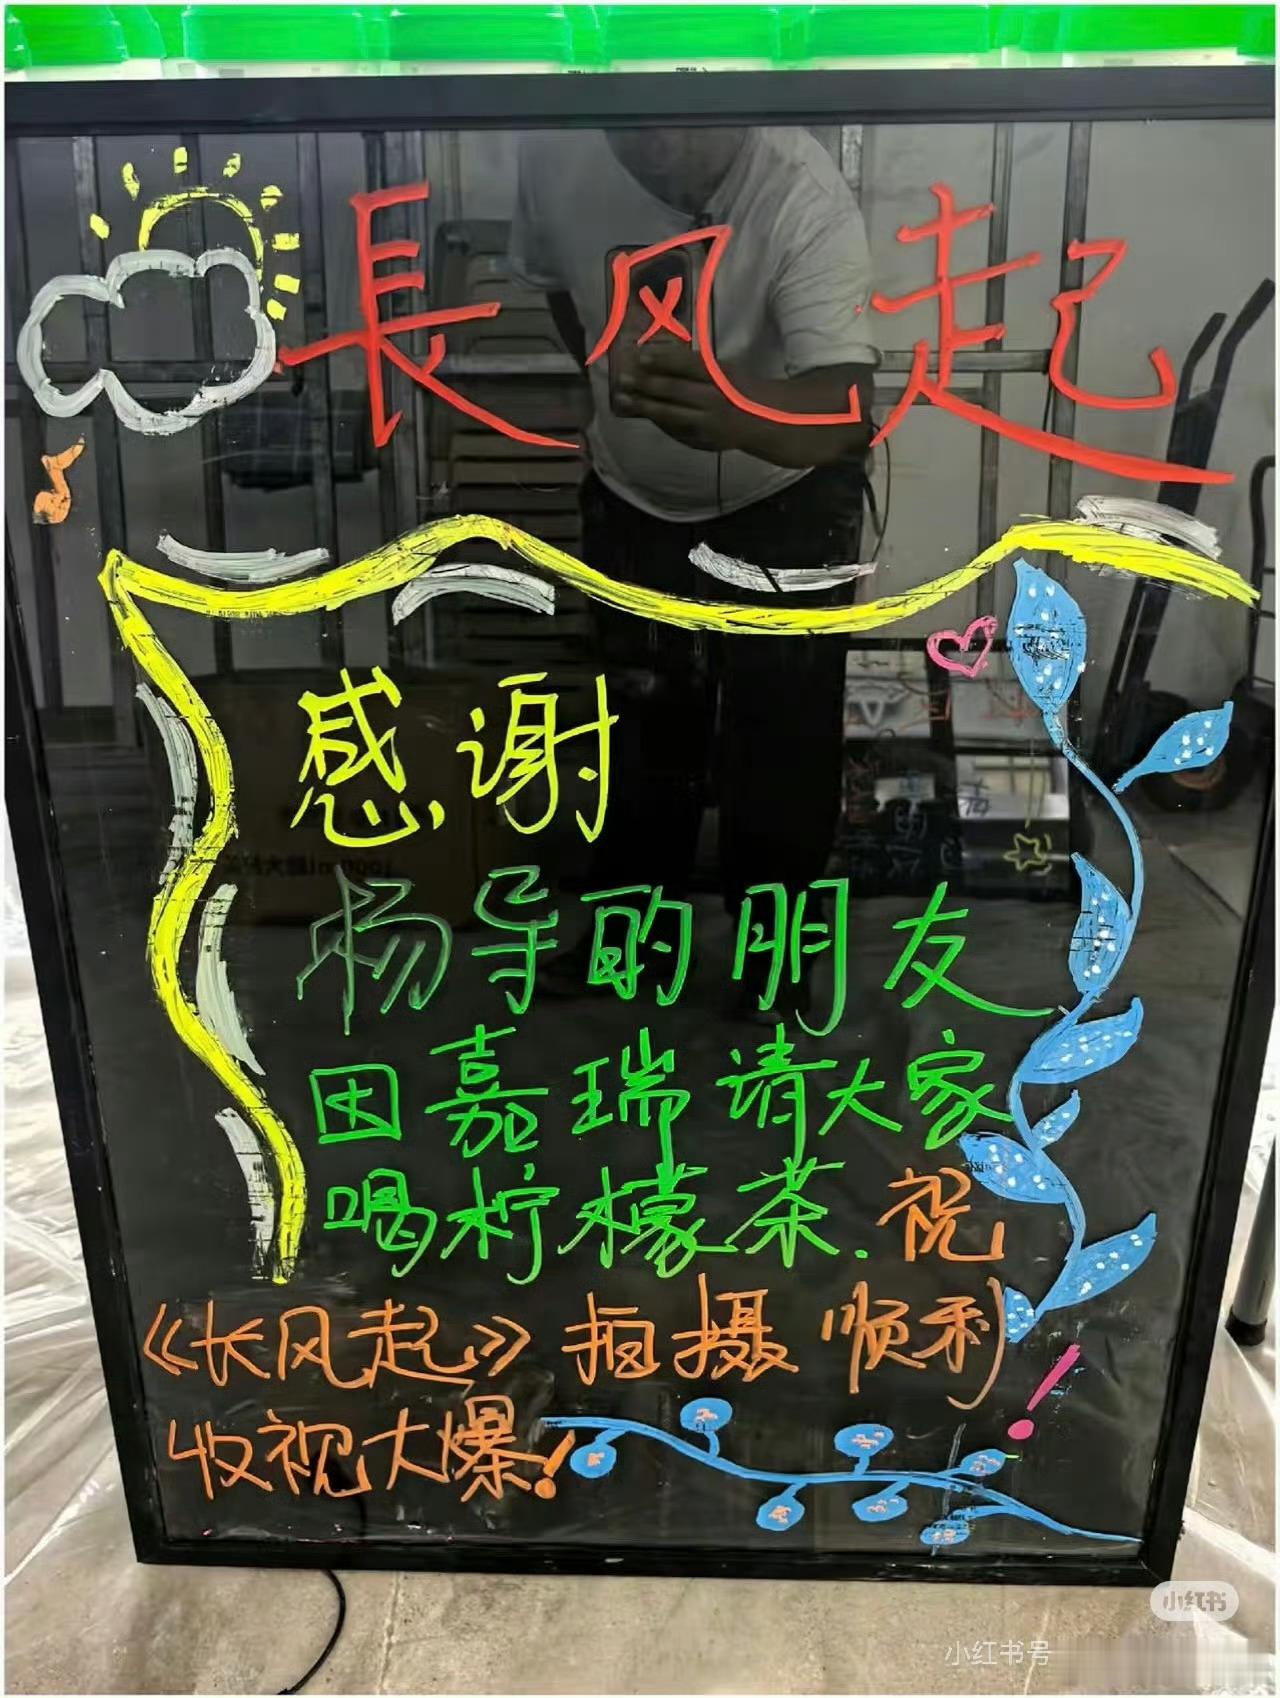 長风起
感谢
杨导的朋友
因嘉瑞请大家
喝柠檬茶.祝
《长风起》拍摄顺利
收视大爆!!
小红书
小红书号